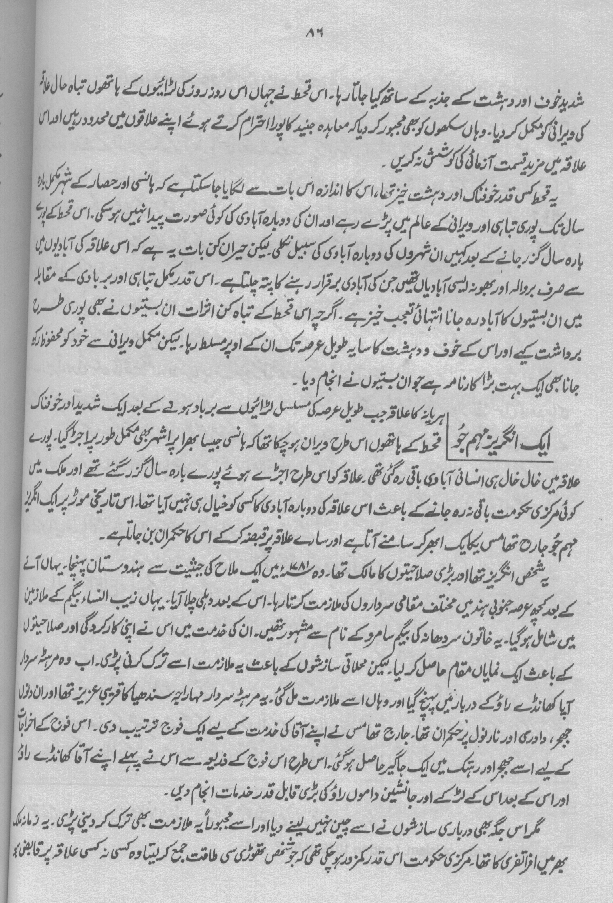 ۸۶
شدید خوف اور دہشت کے جذبہ کے ساتھ کیا جاتا رہا۔ اس قحط نے جہاں اس روز روز کی لڑائیوں کے ہاتھوں تباہ حال علاقہ
کی ویرانی کو مکمل کر دیا۔ وہاں سکھوں کو بھی مجبور کر دیا کہ معاہدہ جنید کا پورا احترام کرتے ہوئے اپنے علاقوں میں محدود رہیں اور اس
علاقہ میں مزید قسمت آزمائی کی کوشش نہ کریں۔
یہ قحط کس قدر خوفناک اور دہشت خیز تھا، اس کا اندازہ اس بات سے لگایا جا سکتا ہے کہ ہانسی اور حصار کے شہر مکمل بارہ
سال تک پوری تباہی اور ویرانی کے عالم میں پڑے رہے اور ان کی دوبارہ آبادی کی کوئی صورت پیدا نہیں ہو سکی۔ اس قحط کے پورے
بارہ سال گزر جانے کے بعد کہیں ان شہروں کی دوبارہ آبادی کی سبیل نکلی لیکن حیران کن بات یہ ہے کہ اس علاقہ کی آبادیوں میں
سے صرف بروالہ اور بھونہ ایسی آبادیاں تھیں جن کی آبادی برقرار رہنے کا پتہ چلتا ہے۔ اس قدر مکمل تباہی اور بربادی کے مقابلہ
میں ان بستیوں کا آباد رہ جانا انتہائی تعجب خیز ہے۔ اگرچہ اس قحط کے تباہ کن اثرات ان بستیوں نے بھی پوری طرح
برداشت کیے اور اس کے خوف و دہشت کا سایہ طویل عرصہ تک ان کے اوپر مسلط رہا۔ لیکن مکمل ویرانی سے خود کو محفوظ رکھ
جانا بھی ایک بہت بڑا کارنامہ ہے جو ان بستیوں نے انجام دیا۔
ایک انگریز مہم جُو
ہریانہ کا علاقہ جب طویل عرصہ کی مسلسل لڑائیوں سے برباد ہونے کے بعد ایک شدید اور خوفناک
قحط کے ہاتھوں اس طرح ویران ہو چکا تھا کہ ہانسی جیسا بھرا پرا شہر بھی مکمل طور پر اجڑ گیا۔ پورے
علاقہ میں خال خال ہی انسانی آبادی باقی رہ گئی تھی۔ علاقہ کو اس طرح اجڑے ہوئے پورے بارہ سال گزر گئے تھے اور ملک میں
کوئی مرکزی حکومت باقی نہ رہ جانے کے باعث اس علاقہ کی دوبارہ آبادی کا کسی کو خیال ہی نہیں آیا تھا۔ اس تاریخی موڑ پر ایک انگریز
مہم جُو جارج تھامس یکایک ابھر کر سامنے آتا ہے اور سارے علاقہ پر قبضہ کر کے اس کا حکمران بن جاتا ہے۔
یہ شخص انگریز تھا اور بڑی صلاحیتوں کا مالک تھا۔ وہ ۱۷۸۱ء میں ایک ملاح کی حیثیت سے ہندوستان پہنچا۔ یہاں آنے
کے بعد کچھ عرصہ جنوبی ہند میں مختلف مقامی سرداروں کی ملازمت کرتا رہا۔ اس کے بعد دہلی چلا آیا۔ یہاں زیب النساء بیگم کے ملازمین
میں شامل ہو گیا۔ یہ خاتون سردھانہ کی بیگم سامرو کے نام سے مشہور تھیں۔ ان کی خدمت میں اس نے اپنی کارکردگی اور صلاحیتوں
کے باعث ایک نمایاں مقام حاصل کر لیا۔ لیکن محلاتی سازشوں کے باعث یہ ملازمت اسے ترک کرنی پڑی۔ اب وہ مرہٹہ سردار
آپا کھانڈے راؤ کے دربار میں پہنچ گیا اور وہاں اسے ملازمت مل گئی۔ یہ مرہٹہ سردار مہاراجہ سندھیا کا قریبی عزیز تھا اور ان دنوں
جھجر، دادری اور نارنول پر حکمران تھا۔ جارج تھامس نے اپنے آقا کی خدمت کے لیے ایک فوج ترتیب دی۔ اس فوج کے اخراجات
کے لیے اسے جھجر اور رہتک میں ایک جاگیر حاصل ہو گئی۔ اس طرح اس فوج کے ذریعہ سے اس نے پہلے اپنے آقا کھانڈے راؤ
اور اس کے بعد اس کے لڑکے اور جانشین داموں راؤ کی بڑی قابل قدر خدمات انجام دیں۔
مگر اس جگہ بھی درباری سازشوں نے اسے چین نہیں لینے دیا اور اسے مجبوراً یہ ملازمت بھی ترک کر دینی پڑی۔ یہ زمانہ ملک
بھر میں افراتفری کا تھا۔ مرکزی حکومت اس قدر کمزور ہو چکی تھی کہ جو شخص تھوڑی سی طاقت جمع کر لیتا وہ کسی نہ کسی علاقہ پر قابض ہو